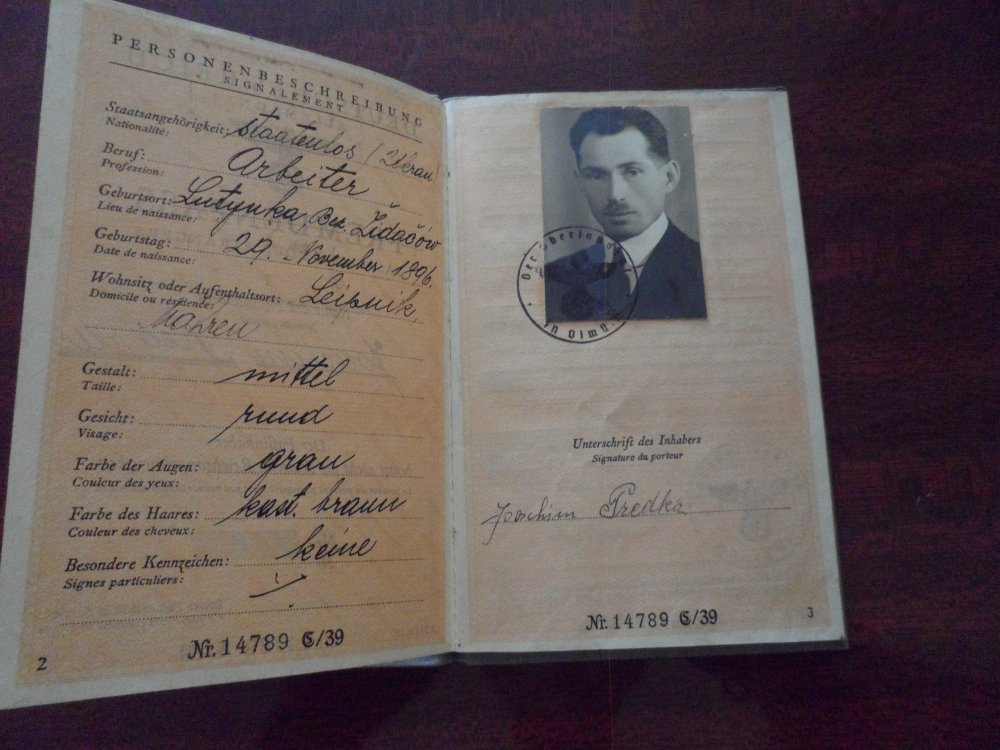 PERSONENBESCHREIBUNG
SIGNALEMENT
Staatsangehörigkeit: staatenlos (Ukran)
Nationalité:
Beruf: Arbeiter
Profession:
Geburtsort: Lutynka, Bez. Židačów
Lieu de naissance:
Geburtstag: 29. November 1896.
Date de naissance:
Wohnsitz oder Aufenthaltsort: Leipnik
Domicile ou résidence:
Mähren
Gestalt: mittel
Taille:
Gesicht: rund
Visage:
Farbe der Augen: grau
Couleur des yeux:
Farbe des Haares: kast. braun
Couleur des cheveux:
Besondere Kennzeichen: keine
Signes particuliers:
Nr. 14789 C/39
2
Unterschrift des Inhabers
Signature du porteur
Joachim Predka
Nr. 14789 C/39
3